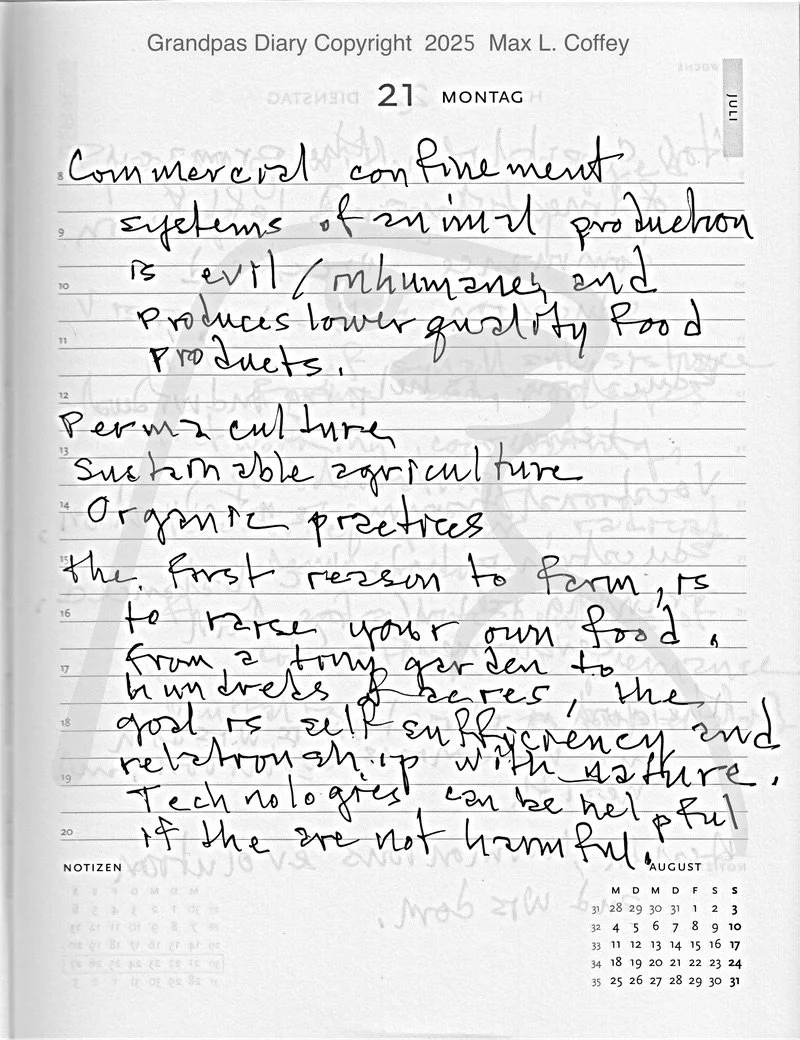 Grandpas Diary Copyright 2025 Max L. Coffey
21 MONTAG
JULI
8 Commercial confinement
9 systems of animal production
10 is evil / inhumane, and
produces lower quality food
11 products.
12
Permaculture,
13 Sustainable agriculture
14 Organic practices
15 the first reason to farm, is
16 to raise your own food.
from a tiny garden to
17 hundreds of acres, the
18 goal is self sufficiency and
relationship with nature.
19 Technologies can be helpful
20 if the are not harmful.
NOTIZEN
AUGUST
M D M D F S S
31 28 29 30 31 1 2 3
32 4 5 6 7 8 9 10
33 11 12 13 14 15 16 17
34 18 19 20 21 22 23 24
35 25 26 27 28 29 30 31